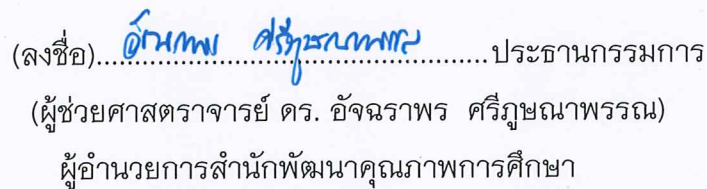 (ลงชื่อ)....อัจฉราพร ศรีภูษณาพรรณ....ประธานกรรมการ
(ผู้ช่วยศาสตราจารย์ ดร. อัจฉราพร ศรีภูษณาพรรณ)
ผู้อำนวยการสำนักพัฒนาคุณภาพการศึกษา